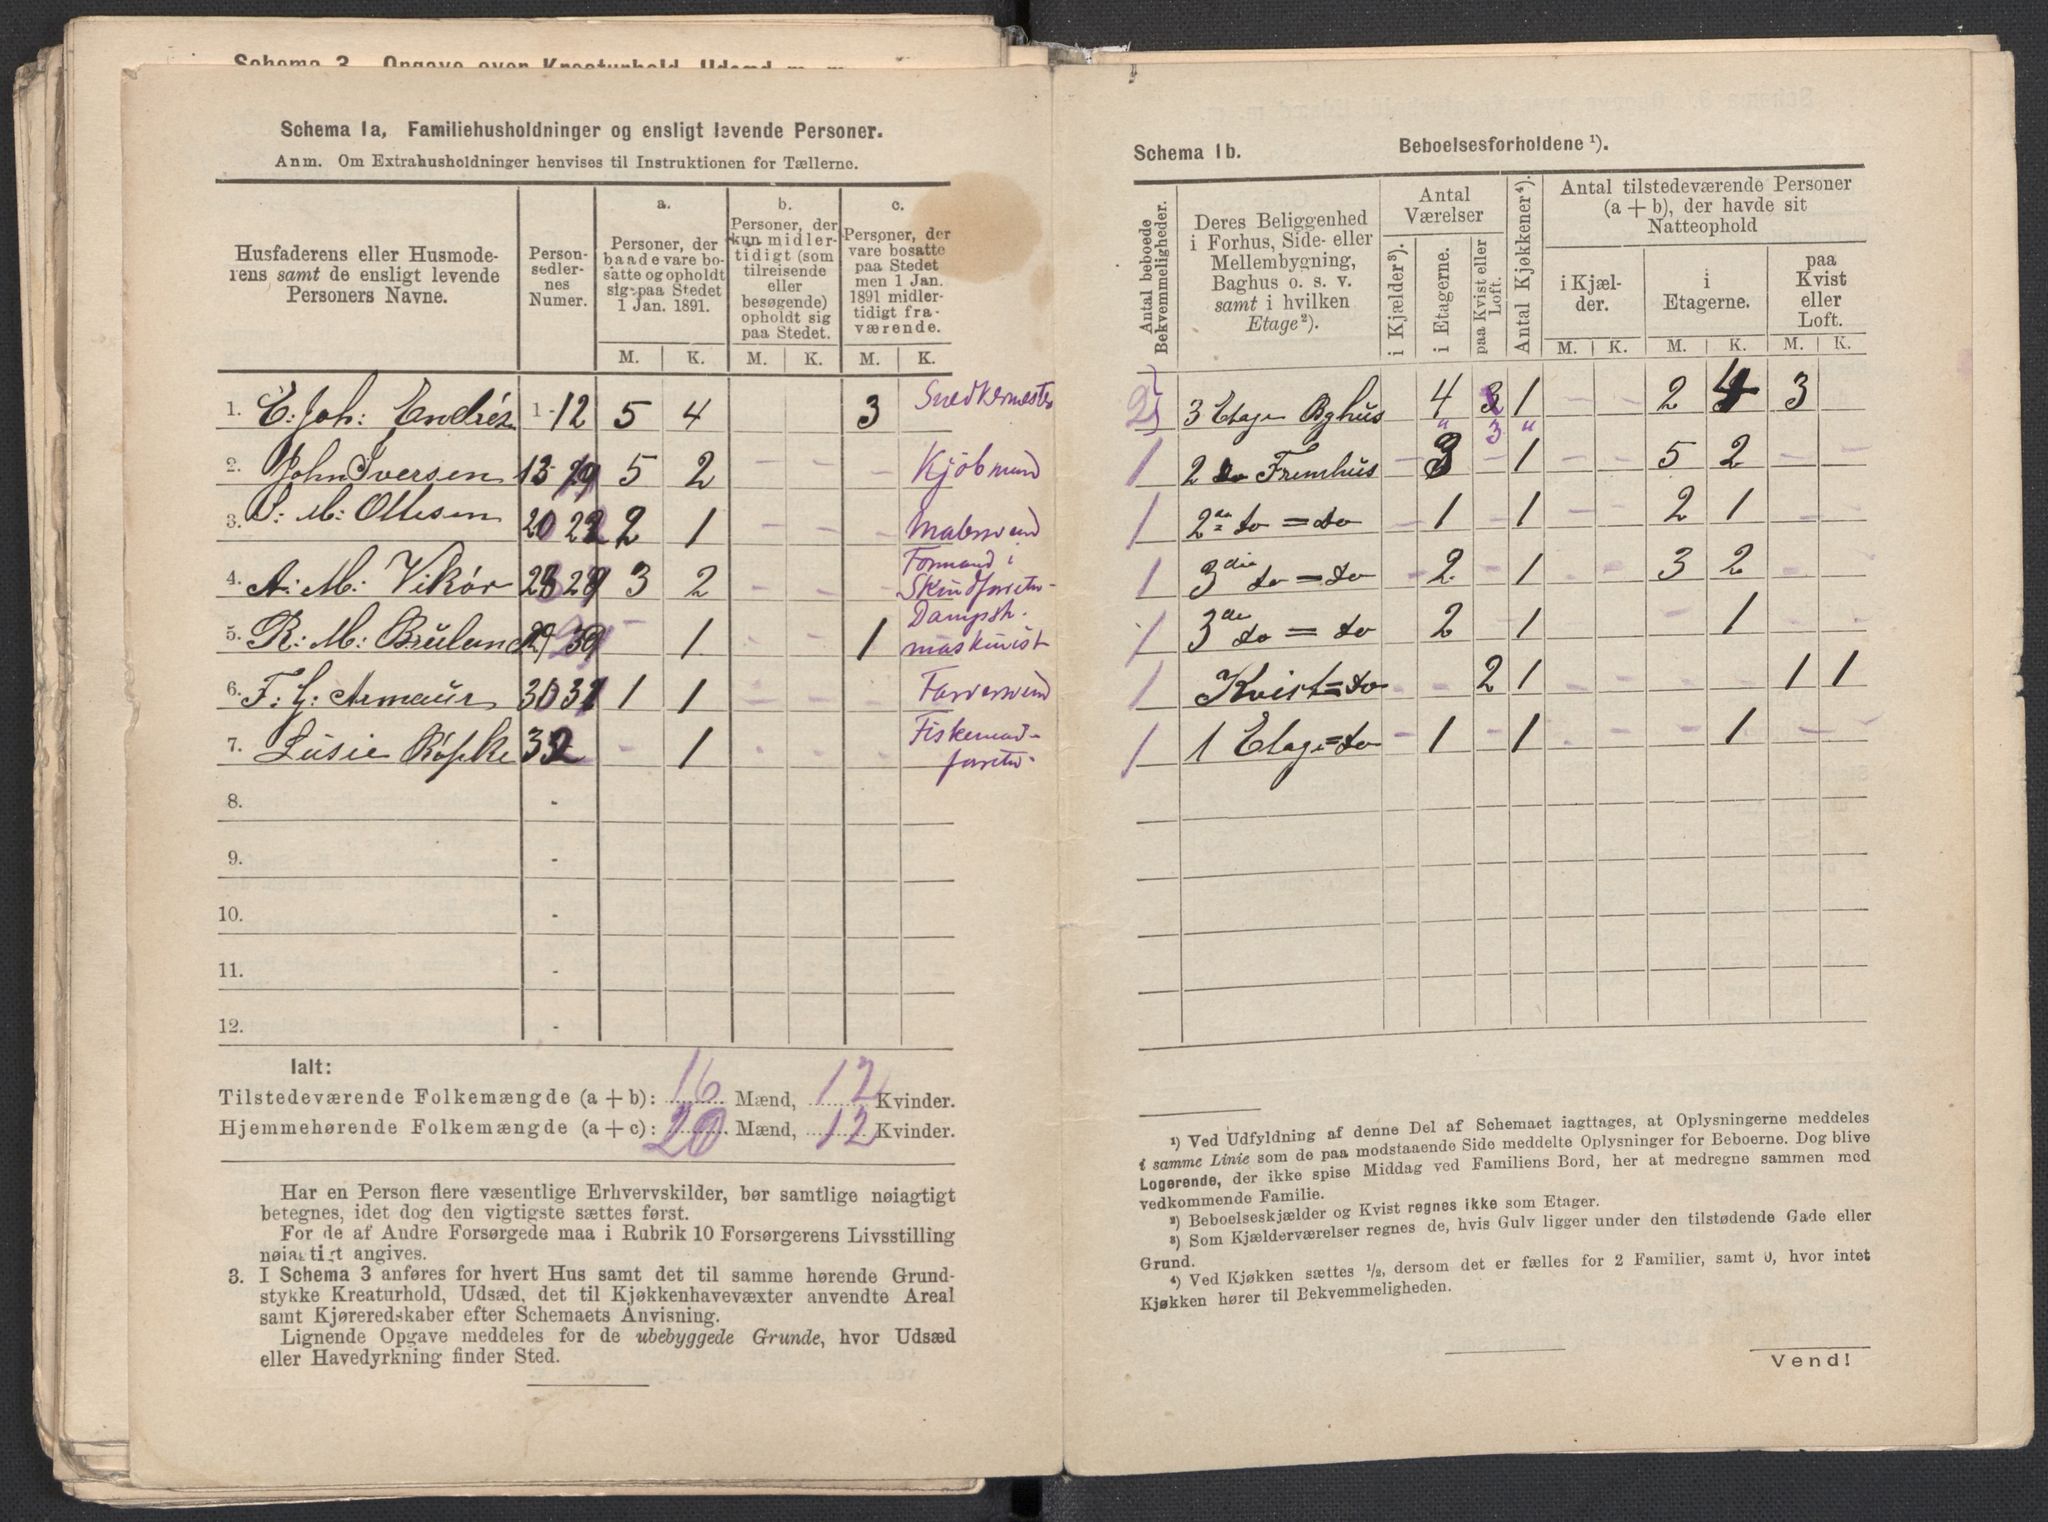 Schema 1a, Familiehusholdninger og ensligt levende Personer.
Anm. Om Extrahusholdninger henvises til Instruktionen for Tællerne.
Husfaderens eller Husmoderens samt de ensligt levende Personers Navne.
Personsedlernes Numer.
a.
Personer, der baade vare bosatte og opholdt sig paa Stedet 1 Jan. 1891.
b.
Personer, der kun midlertidigt (som tilreisende eller besøgende) opholdt sig paa Stedet.
c.
Personer, der vare bosatte paa Stedet men 1 Jan. 1891 midlertidigt fraværende.
M. K. M. K. M. K.
1. E. Joh: Endrés 1-12 5 4 3 Snedkermester
2. John Iversen 13 19 5 2 - - - Kjøbmand
3. S: M: Ottesen 20 22 2 1 - - - Malersvend
4. A: M: Vikör 3 2 - - - Formand i Skindforretn-
5. R: M: Bruland - 1 1 Dampsk. maskinist
6. F: G: Armaur 1 1 - - - Farversvend
7. Lusie Köpke 32 - 1 Fiskemadforretn-
8. -
9. -
10. -
11. -
12. -
Ialt:
Tilstedeværende Folkemængde (a + b): 16 Mænd, 12 Kvinder.
Hjemmehørende Folkemængde (a + c): 20 Mænd, 12 Kvinder.
Har en Person flere væsentlige Erhvervskilder, bør samtlige nøiagtigt
betegnes, idet dog den vigtigste sættes først.
For de af Andre Forsørgede maa i Rubrik 10 Forsørgerens Livsstilling
nøiagtigt angives.
3. I Schema 3 anføres for hvert Hus samt det til samme hørende Grund-
stykke Kreaturhold, Udsæd, det til Kjøkkenhavevæxter anvendte Areal
samt Kjøreredskaber efter Schemaets Anvisning.
Lignende Opgave meddeles for de ubebyggede Grunde, hvor Udsæd
eller Havedyrkning finder Sted.
Schema 1b. Beboelsesforholdene ¹).
Antal beboede Bekvemmeligheder.
Deres Beliggenhed i Forhus, Side- eller Mellembygning, Baghus o. s. v. samt i hvilken Etage²).
Antal Værelser
i Kjælder³).
i Etagerne.
paa Kvist eller Loft.
Antal Kjøkkener⁴).
Antal tilstedeværende Personer
(a + b), der havde sit
Natteophold
i Kjælder.
i Etagerne.
paa Kvist eller Loft.
M. K. M. K. M. K.
2 3 Etage Bghus 4 1 - - 2 4 3
1 2 do Fremhus - 3 - 1 - - 5 2 - -
1 2den do = do - 1 - 1 - - 2 1 - -
1 3die do = do - 2 - 1 - - 3 2 - -
1 3de do = do 2 1 1
1 Kvist = do - - 2 1 - - - - 1 1
1 1 Etage = do - 1 - 1 - - - 1 - -
¹) Ved Udfyldning af denne Del af Schemaet iagttages, at Oplysningerne meddeles
i samme Linie som de paa modstaaende Side meddelte Oplysninger for Beboerne. Dog blive
Logerende, der ikke spise Middag ved Familiens Bord, her at medregne sammen med
vedkommende Familie.
²) Beboelseskjælder og Kvist regnes ikke som Etager.
³) Som Kjælderværelser regnes de, hvis Gulv ligger under den tilstødende Gade eller
Grund.
⁴) Ved Kjøkken sættes ½, dersom det er fælles for 2 Familier, samt 0, hvor intet
Kjøkken hører til Bekvemmeligheden.
Vend!